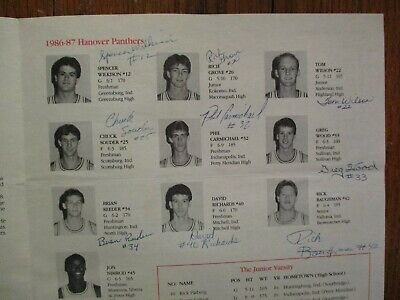 1986-87 Hanover Panthers
Spencer Wilkison
#12
SPENCER
WILKISON #12
G 6-1 170
Freshman
Greensburg, Ind.
Greensburg High
Rich Grove
RICH
GROVE #20
G 5-10 165
Junior
Kokomo, Ind.
Maconaquah High
TOM
WILSON #22
G 5-11 165
Junior
Anderson, Ind.
Highland High
Tom Wilson
#22
Chuck
Souder
CHUCK
SOUDER #25
F 6-5 185
Freshman
Scottsburg, Ind.
Scottsburg High
Phil Carmichael
#32
PHIL
CARMICHAEL #32
F 6-5 185
Freshman
Indianapolis, Ind.
Perry Meridian High
GREG
WOOD #33
F 6-5 185
Freshman
Sullivan, Ind.
Sullivan High
Greg Wood
#33
BRIAN
REEDER #34
G 6-2 170
Freshman
Huntington, Ind.
North High
Brian Reeder
#34
DAVID
RICHARDS #40
F 6-6 195
Freshman
Mitchell, Ind.
Mitchell High
David
#40 Richards
RICK
BAUGHMAN #42
F
Senior
Ind.
High
Rick
Baughman #42
JON
NIMROD #45
F 6-5 185
Freshman
High
The Junior Varsity
NO NAME POS HT WT YR HOMETOWN (High School)